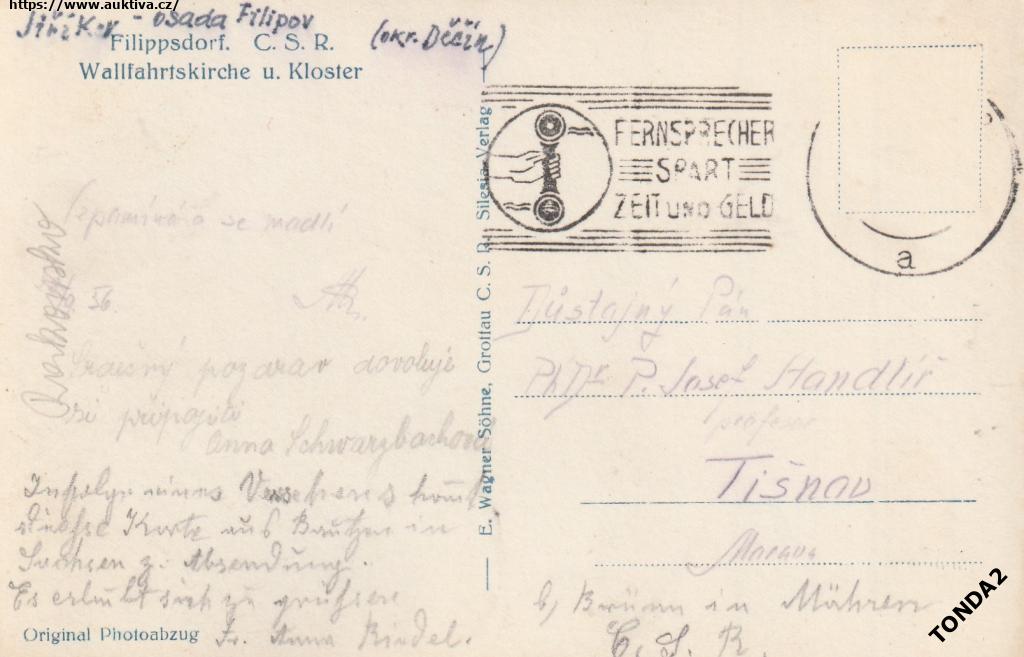 https://www.auktiva.cz/
Jiříkov - osada Filipov
(okr. Děčín)
Filippsdorf. C. S. R.
Wallfahrtskirche u. Kloster
FERNSPRECHER
SPART
ZEIT UND GELD
a
se modlí
56.
Srdečný pozdrav dovoluje
si připojiti
Anna Schwarzbachová
Infolge eines Versehens kommt
diese Karte aus Bautzen in
Sachsen z. Absendung.
Es erlaubt sich zu grüßen
Fr. Anna Riedel.
Original Photoabzug
E. Wagner Söhne, Grottau C. S. R. Silesia-Verlag
Důstojný Pán
PhDr P. Josef Handlíř
profesor
Tišnov
Morava
b/ Brünn in Mähren
Č. S. R.
TONDA2